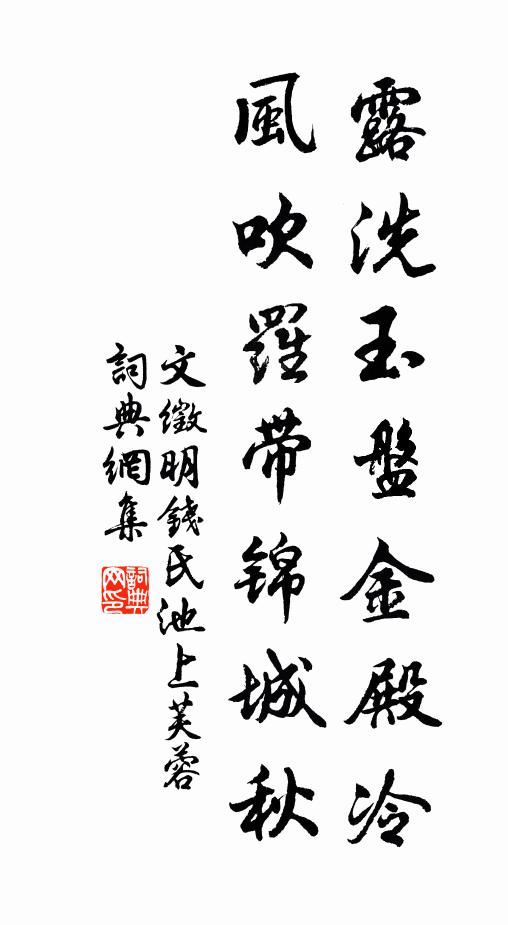 露洗玉盤金殿冷
風吹羅帶錦城秋
文徵明錢氏池上芙蓉
詞典網集
詞典網印